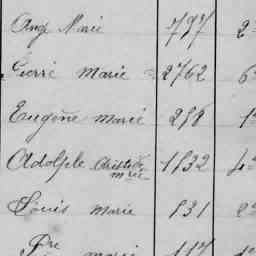 Ang Marie 797 2
Pierre Marie 2762 6
Eugène Marie 298 1
Adolphe Christophe 1832 4
Mrie
Louis Marie 831 2
Pre Marie 117